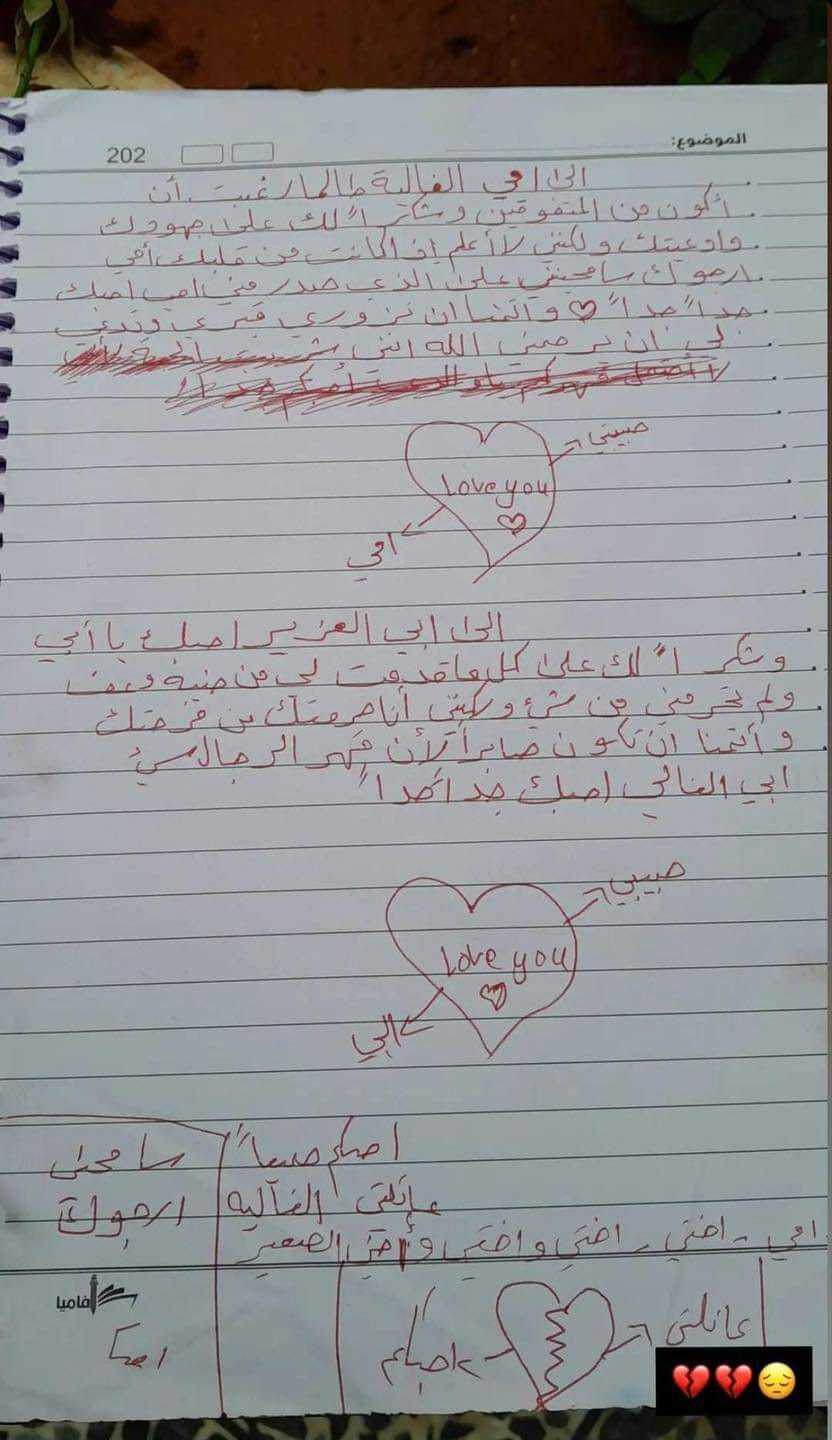 الموضوع:
202
الى امي الغالية طالما رغبت أن
أكون من المتفوقين وشكراً لك على جهودك
وادعيتك ولكني لا أعلم إذ اكانت من قلبك أمي
ارجوك سامحيني على الذي صدر مني امي احبك
جداً جداً ♡ و اتمنا ان تزوري قبري وتدعي
لي ان يرحمني الله انني شربت
حبيبتي
Love you
امي
الى ابي العزيز احبك يا أبي
وشكراً لك على كل ما قدمت لي من
ولم تحرمني من شيء ولكني أنا حرمتك من فرحتك
و أتمنا ان تكون صابراً لأن قهر الرجال سيء
ابي الغالي احبك جداً جداً
حبيبي
Love you
ابي
احبكم جميعاً
سامحني
عائلتي الغالية
ارجوك
امي - اختي - اختي واختي وأخي الصغير
فاميا
عائلتي
احبكم
💔💔😔